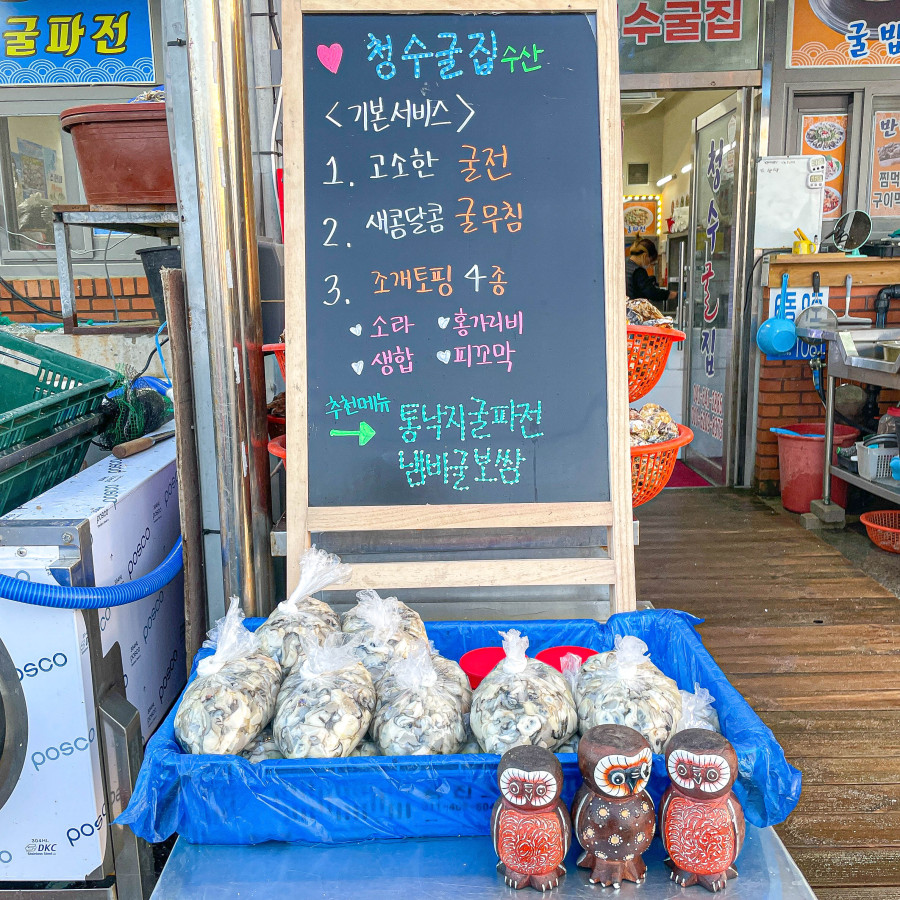 굴파전
수굴집
굴밥
청수굴집 수산
<기본서비스>
1. 고소한 굴전
2. 새콤달콤 굴무침
3. 조개토핑 4종
소라 홍가리비
생합 피꼬막
추천메뉴
통낙지굴파전
냄비굴보쌈
청수굴집
반
찜
구이
posco
posco
posco
posco
posco
DKC